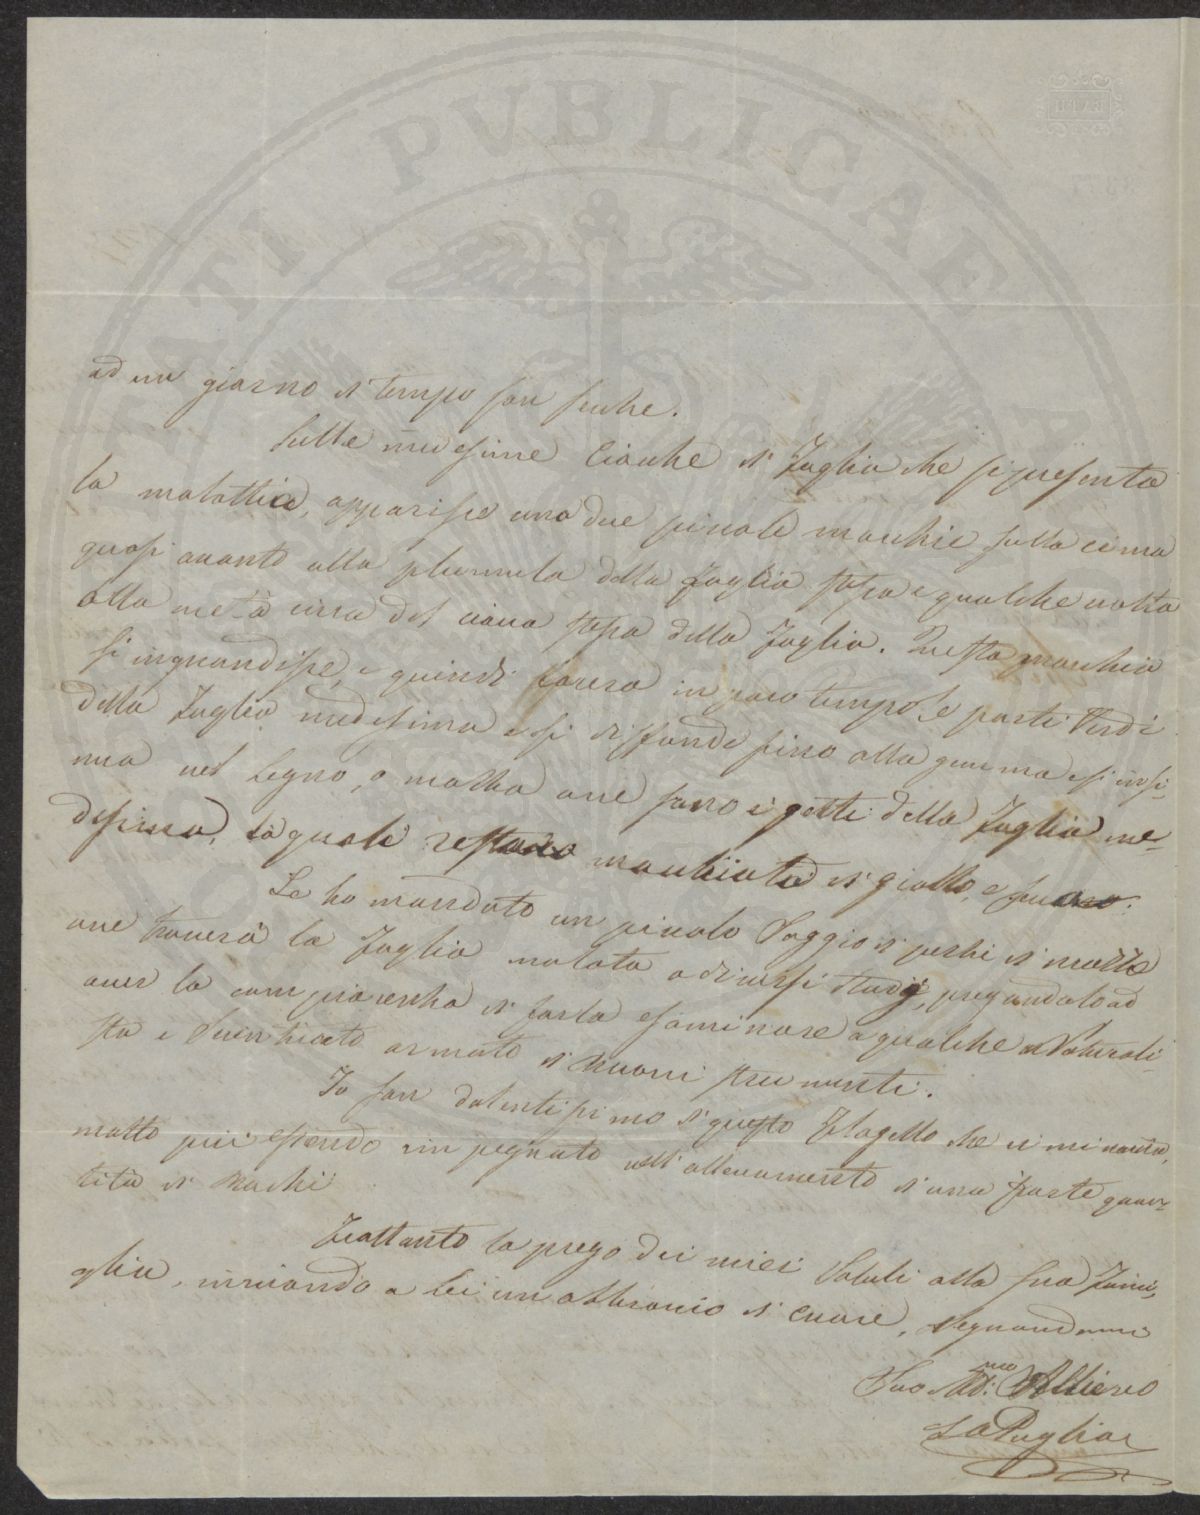 PVBLICAE
ad un giorno di tempo son secche.
Sulle medesime Cioche di Foglia che si presenta
la malattia, apparisce una due piccole machie sulla cima
quasi avanti alla plumula della foglia stessa e qualche volta
alla metà circa del stessa della foglia. Questa machia
si ingrandisce, e quindi in poco tempo le parti Verdi
della Foglia medesima e si diffonde fino alla gemma e si insi-
nua nel Legno, o molla ove sono i getti della Foglia me-
desima, la quali restano machiate di giallo, e
Le ho mandato un picolo Saggio di peshi di
ove troverà la Foglia malata a diversi stadj, pregandolo ad
aver la compiacenza di farla esaminare a qualche Naturali-
sta e Scienziato armato di buoni strumenti.
Io son dolentissimo di questo Flagello che ci minaccia,
molto più essendo impegnato nell'allevamento d'una forte quan-
tità di Bachi
Frattanto la prego dei miei Saluti alla sua Fami-
glia, inviando a Lei un abbraccio di cuore, segnandomi
Suo
La Puglia